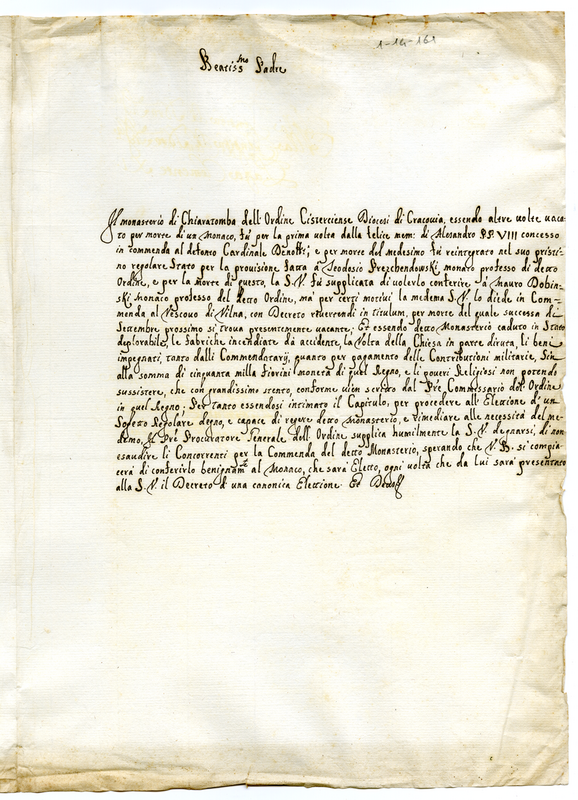 1-14-161
Beatiss.mo Padre
Il monasterio di Chiaratomba dell'Ordine Cisterciense Diocesi di Cracovia, essendo altre volte vaca-
to per morte di un Monaco, fù per la prima volta dalla felice mem: di Alesandro PP. VIII concesso
in commenda al defonto Cardinale Denoff; e per morte del medesimo fù reintegrato nel suo pristi-
no regolare Stato per la provisione fatta à Teodosio Przchendowski monaco professo di detto
Ordine, e per la morte di questo, la S.V. fù supplicata di volerlo conferire à Mauro Dobin-
ski monaco professo del detto Ordine, ma per certi motivi la medema S.V. lo diede in Com-
menda al Vescovo di Vilna, con Decreto revertendi in titulum, per morte del quale successa di
Settembre prossimo si trova presentemente vacante; Et essendo detto Monasterio caduto in Stato
deplorabile, le fabriche incendiate da accidente, la Volta della Chiesa in parte diruta, li beni
impegnati, tanto dalli Commendatarij, quanto per pagamento delle Contributioni militarie, Sin
alla somma di cinquanta milla Fiorini moneta di quel Regno, e li poveri Religiosi non potendo
sussistere, che con grandissimo stento, conforme vien scritto dal Pre Commissario del Ordine
in quel Regno; Per tanto essendosi intimato il Capitulo, per procedere all'Elettione d'un
Sogetto Regolare degno, e capace di regere detto monasterio, e rimediare alle necessità del me-
demo, il Pre Procuratore Generale dell'Ordine supplica humilmente la S.V. degnarsi, di non
esaudire li Concorrenti per la Commenda del detto Monasterio, sperando che V.B. si compia-
cerà di conferirlo benignam.te al Monaco, che sarà Eletto, ogni volta che da lui sarà presentato
alla S.V. il Decreto d'una canonica Elettione Et